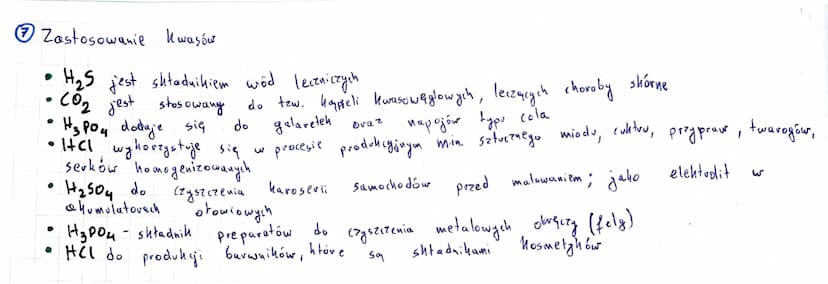 7 Zastosowanie kwasów
• H₂S jest składnikiem wód leczniczych
• CO₂ jest stosowany do tzw. kąpieli kwasowęglowych, leczących choroby skórne
• H₃PO₄ dodaje się do galaretek oraz napojów typu cola
• HCl wykorzystuje się w procesie produkcyjnym m.in. sztucznego miodu, cukru, przypraw, twarogów,
serków homogenizowanych
• H₂SO₄ do czyszczenia karoserii samochodów przed malowaniem; jako elektrolit w
akumulatorach ołowiowych
• H₃PO₄ - składnik preparatów do czyszczenia metalowych obręczy (felg)
• HCl do produkcji barwników, które są składnikami kosmetyków